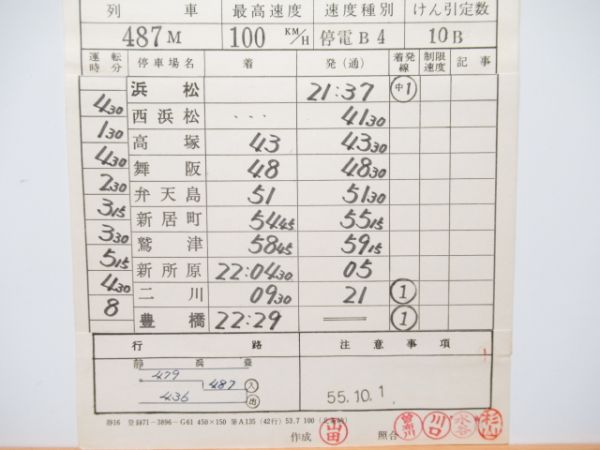 列 車 最高速度 速度種別 けん引定数
487M 100 KM/H 停電B4 10B
運転時分 停車場名 着 発(通) 着発線 制限速度 記事
浜松 21:37 中1
4 30
西浜松 ... 41 30
1 30
高塚 43 43 30
4 30
舞阪 48 48 30
2 30
弁天島 51 51 30
3 15
新居町 54 45 55 15
3 30
鷲津 58 45 59 15
5 15
新所原 22:04 30 05
4 30
二川 09 30 21 1
8
豊橋 22:29 ═ 1
行 路 注意事項
静 浜 豊
479
487 入
436 出
55.10.1
登録71-3896-G61 450×150 筆A135 (42行) 53.7 100
作成 山田 照合 川口 水谷 杉山